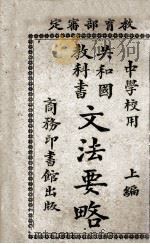 定審部育教
中學校用
上編
共和國
教科書
文法要略
商務印書館出版